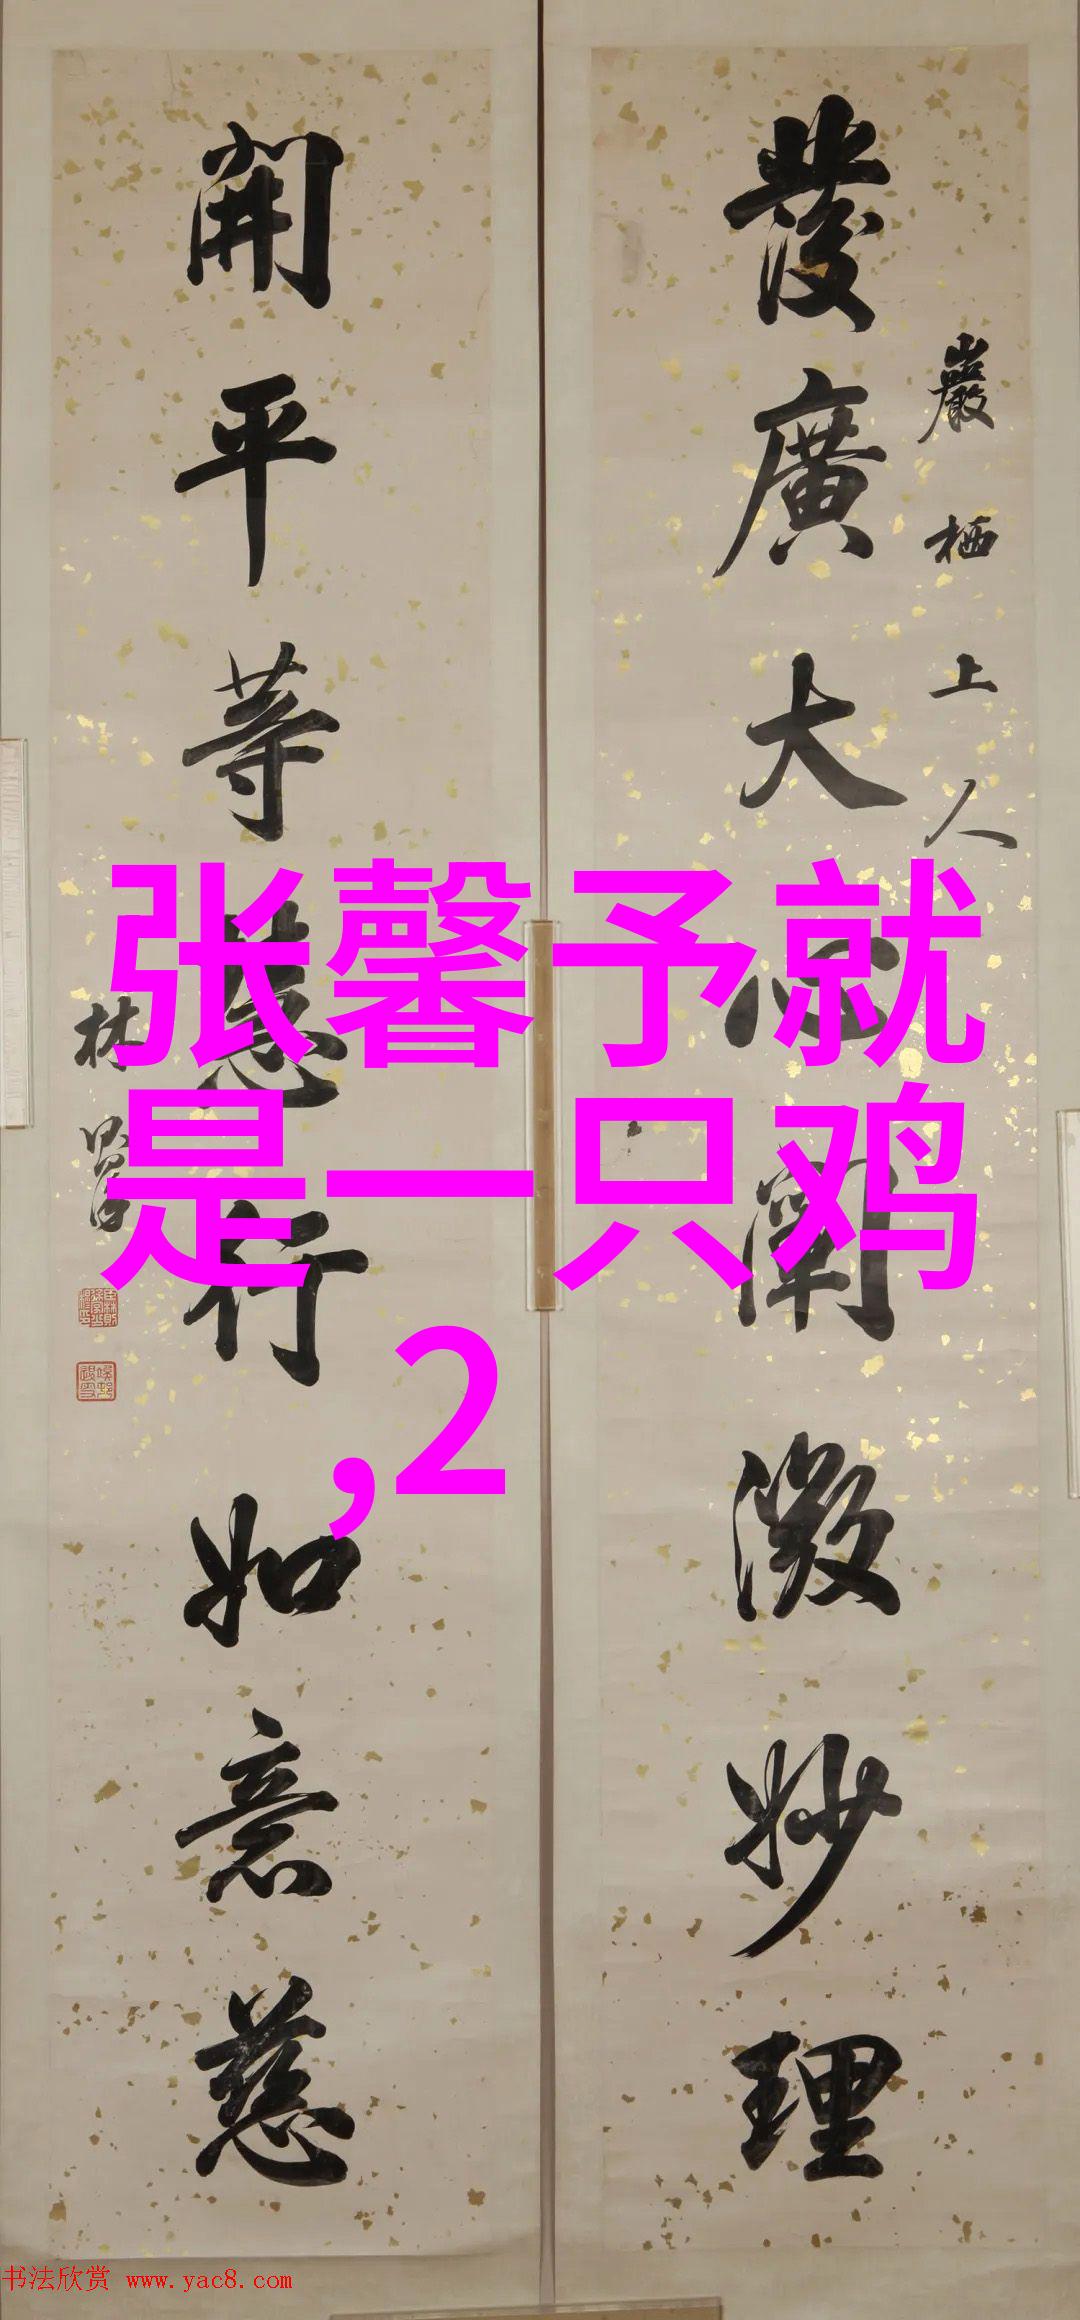 發廣大心闡微妙理
巖栖上人
開平等慧行如意慈
林
张馨予就
是一只鸡
,2
书法欣赏 www.yac8.com